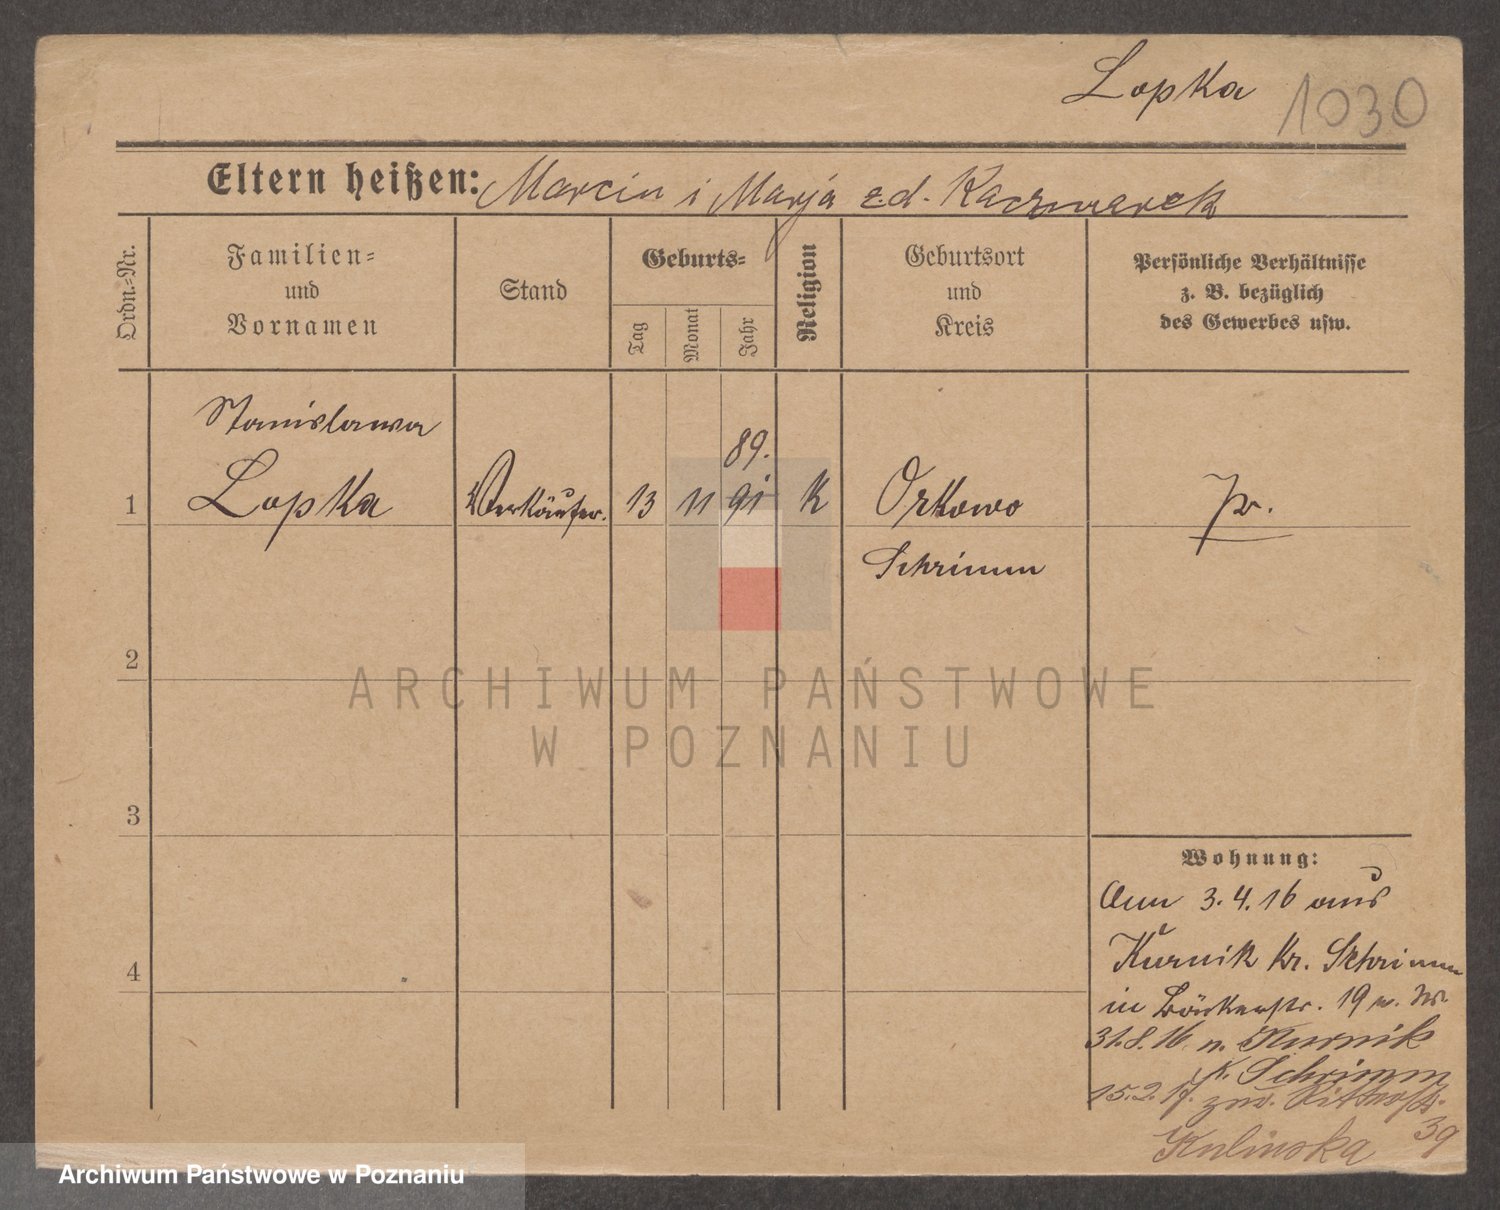 Lopka 1030
Eltern heißen: Marcin i Marja z.d. Kaczmarek
Ordn.-Nr.
Familien-
und
Vornamen
Stand
Geburts-
Tag
Monat
Jahr
Religion
Geburtsort
und
Kreis
Persönliche Verhältnisse
z. B. bezüglich
des Gewerbes usw.
Stanislawa
89.
1 Lopka Verkäufer. 13 11 91 K Orkowo Pr.
Schrimm
2
ARCHIWUM PAŃSTWOWE
W POZNANIU
3
Wohnung:
Ann 3.4.16 aus
Kurnik Kr. Schrimm
4
in Bäckerstr. 19 w.
31.8.16 n. Kurnik
K. Schrimm
15.2.17. zur. Ritterstr.
39
Kulinska
Archiwum Państwowe w Poznaniu